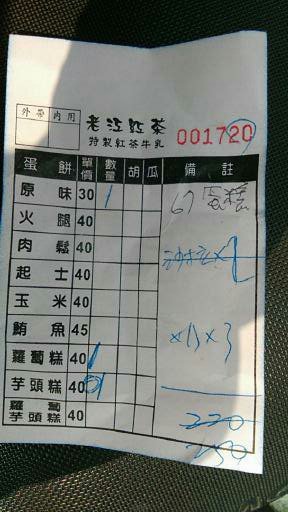 外帶 內用
老江紅茶
特製紅茶牛乳
001720
蛋餅 單價 數量 胡 瓜 備註
原味 30 1
火腿 40
肉鬆 40
起士 40
玉米 40
鮪魚 45
蘿蔔糕 40 1
芋頭糕 40 1
蘿蔔芋頭糕 40
220
250